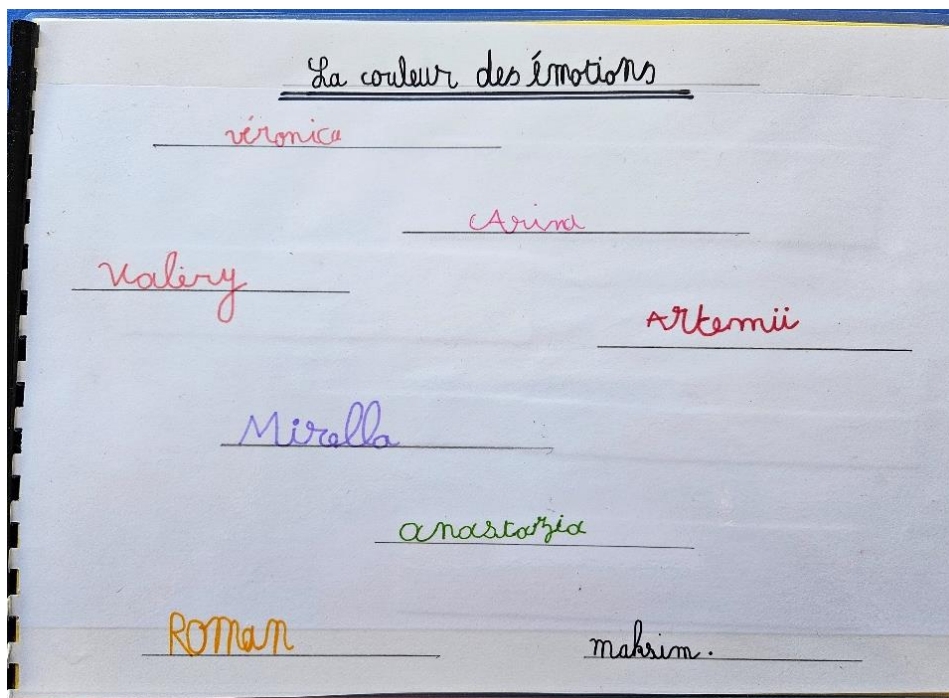 La couleur des émotions
véronica
Arina
Valéry
Artemii
Mirella
anastazia
Roman
maksim.